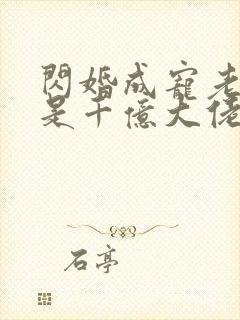 閃婚成寵老
是千億大佬
石亭